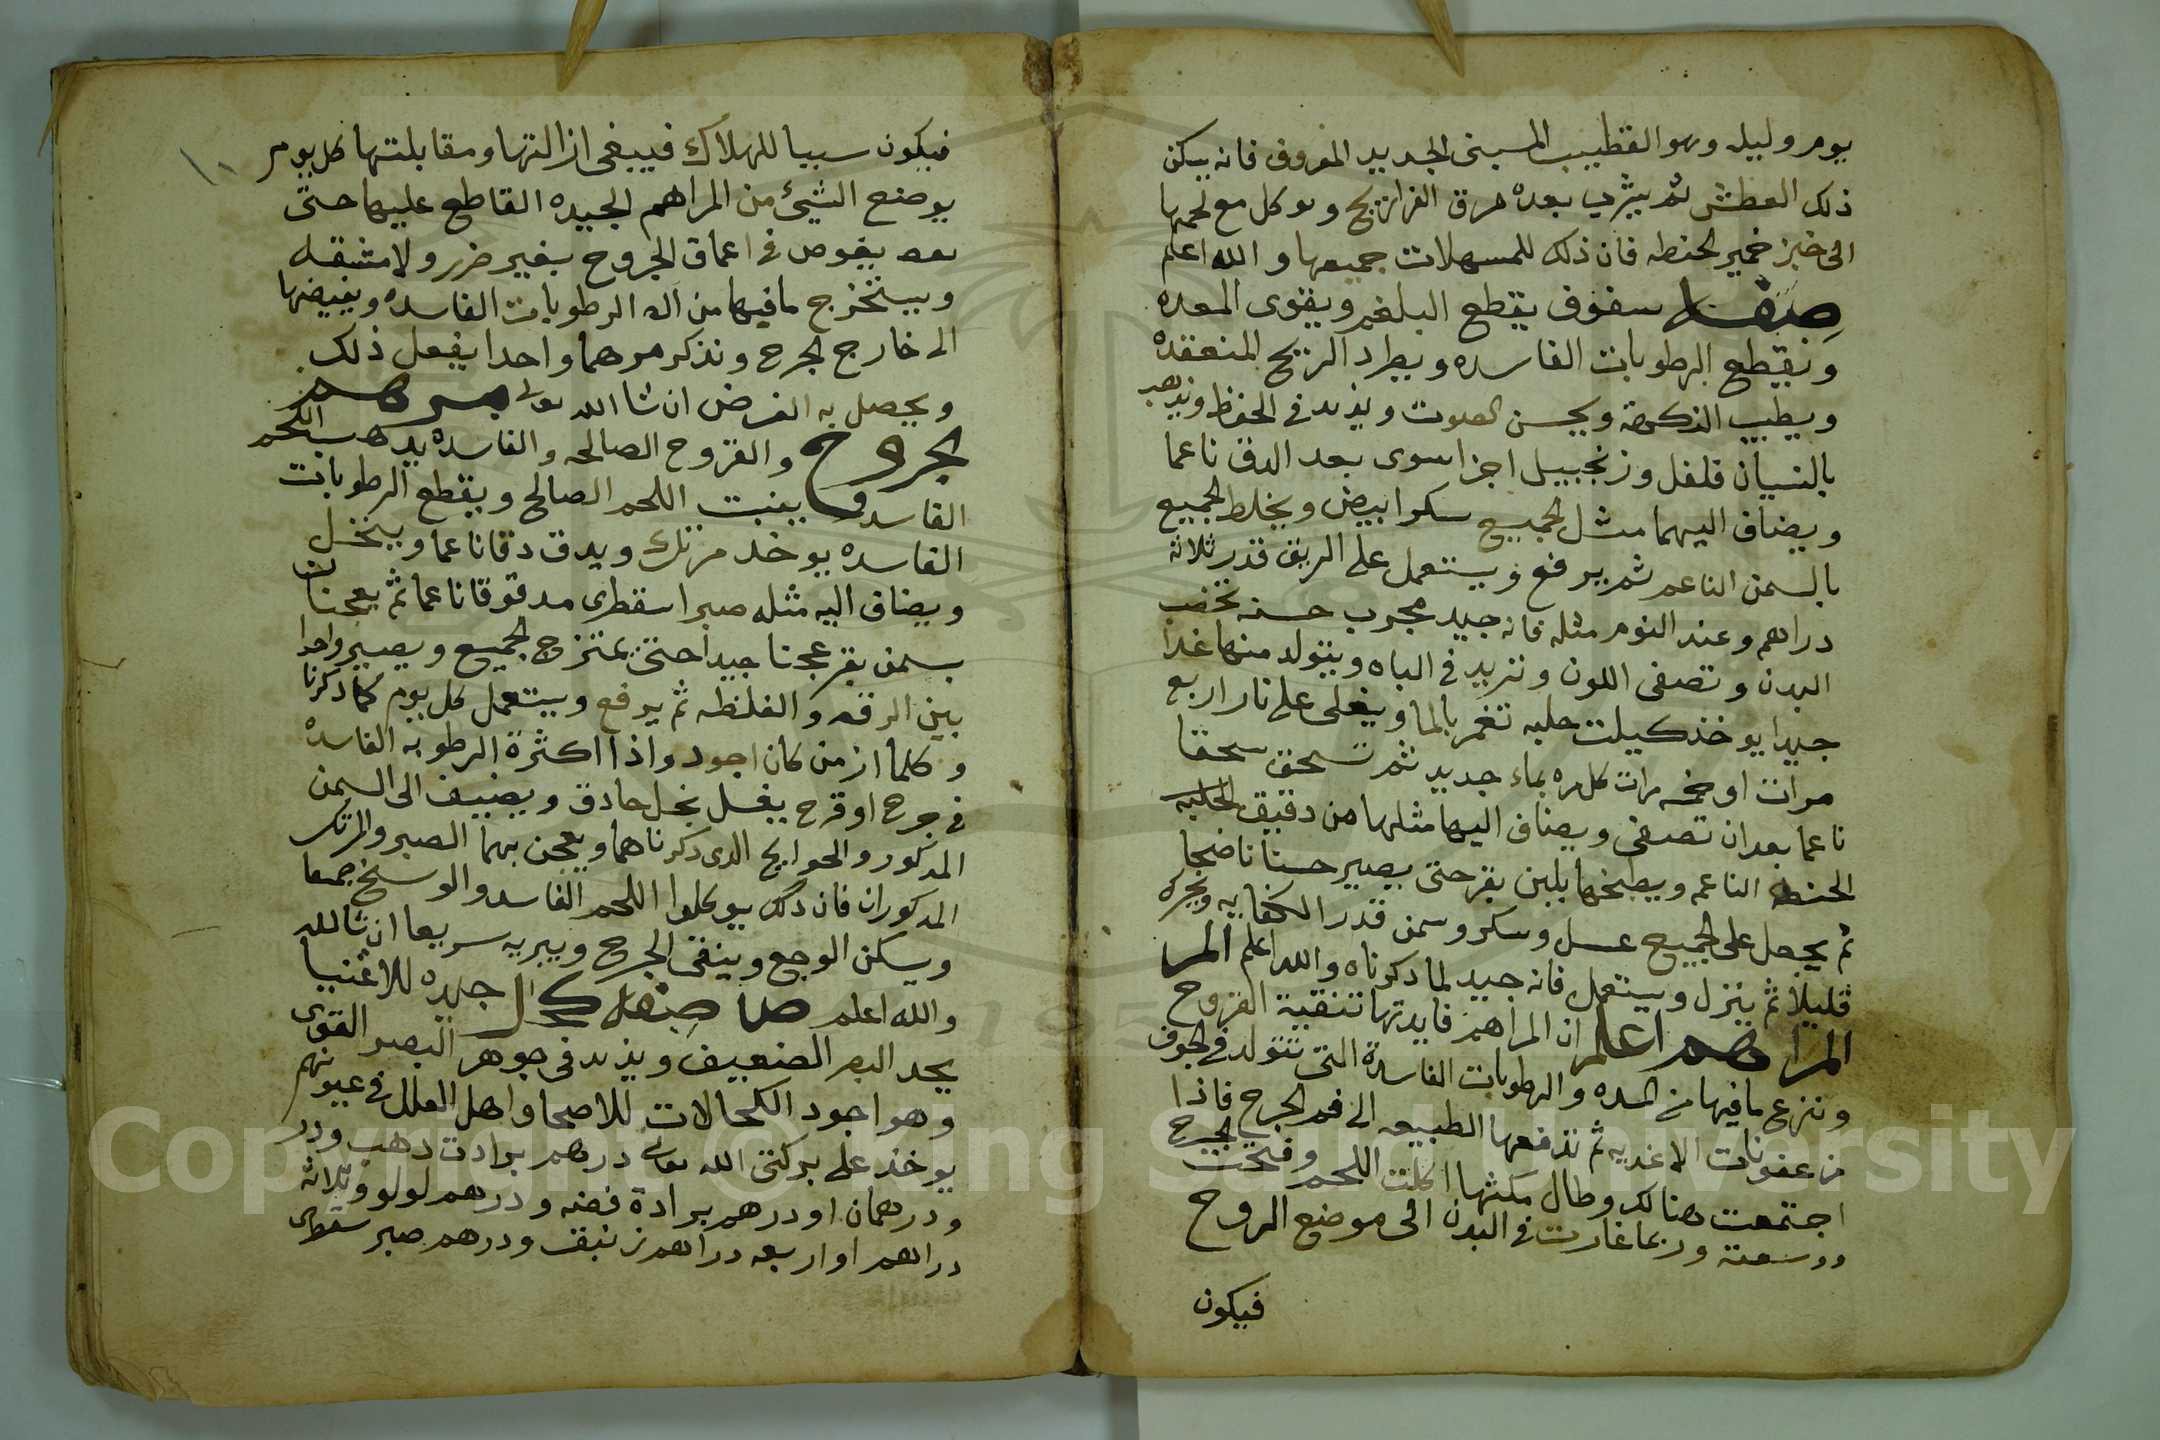 يوم وليله وهو القطيب المسبى الجديد المعروف فانه يسكن
ذلك العطش ثم يشرب بعده مرق الفراريج ويوكل مع لحمها
الى خبز خمير الحنطه فان ذلك للمسهلات جميعها والله اعلم
صفة سفوف يقطع البلغم ويقوى المعده
ويقطع الرطوبات الفاسده ويطرد الريح المنعقده
ويطيب النكهة ويحسن الصوت ويزيد في الحفظ ويذهب
بالنسيان فلفل وزنجبيل اجزا سوى بعد الدق ناعما
ويضاف اليهما مثل الجميع سكر ابيض ويخلط الجميع
بالسمن الناعم ثم يرفع ويستعمل على الريق قدر ثلاثة
دراهم وعند النوم مثله فانه جيد مجرب حسنه تخصب
البدن وتصفى اللون وتزيد في الباه ويتولد منها غذا
جيدا يوخذ كيلت حلبه تغمر بالما ويغلى على نار اربع
مرات او خمسه مرات كل مره بماء جديد ثم تسحق سحقا
ناعما بعد ان تصفى ويضاف اليها مثلها من دقيق الحلبه
الحنطه الناعمه ويطبخها بلبن بقر حتى يصير حسنا ناضجا
ثم يجعل على الجميع عسل وسكر وسمن قدر الكفايه ويحركه
قليلا ثم ينزل ويستعمل فانه جيد لما ذكرناه والله اعلم المر
المراهم اعلم ان المراهم فايدتها تنقية القروح
وتنزع ما فيها من المده والرطوبات الفاسدة التى تتولد في الجوف
من عفونات الاغديه ثم تدفعها الطبيعه الى فم الجرح فاذا
اجتمعت هنالك وطال مكثها اكلت اللحم وفتحت الجرح
ووسعته وربما غارت في البدن الى موضع الروح
فيكون
١٠
فيكون سببا للهلاك فيبغى ازالتها ومقابلتها كل يوم
بوضع الشيئ من المراهم الجيده القاطع عليها حتى
يغوص في اعماق الجروح بغير ضرر ولا مشقه
ويستخرج ما فيها من الرطوبات الفاسده ويفيضها
الى خارج الجرح ونذكر مرهما واحدا يفعل ذلك
ويحصل به الغرض ان شا الله تعالى مرهم
الجروح والقروح الصالحه والفاسده يذهب اللحم
الفاسد وينبت اللحم الصالح ويقطع الرطوبات
الفاسده يوخد مرتك ويدق دقا ناعما وينخل
ويضاف اليه مثله صبر اسقطرى مدقوقا ناعما ثم يعجنان
بسمن بقر عجنا جيدا حتى يمتزج الجميع ويصير واحدا
بين الرقه والغلظه ثم يرفع ويستعمل كل يوم كما ذكرنا
وكلما ازمن كان اجود واذا اكثرة الرطوبه الفاسده
في جرح او قرح يغسل بخل حادق ويضيف الى السمن
المذكور والحوايج الدى ذكرناهما ويعجن بهما الصبر والمرتك
المدكوران فان ذلك يوكلوا اللحم الفاسد والوسخ جمعا
ويسكن الوجع وينقى الجرح ويبريه سريعا ان شا الله
والله اعلم صفة كحل جيده للاغنيا
يحد البصر الضعيف ويزيد في جوهر البصر القوى
وهو اجود الكحالات للاصحا واهل العلل في عيونهم
يوخذ على بركتى الله تعالى درهم برادت دهب ودر
ودرهمان او درهم برادة فضه ودرهم لولو وثلاثة
دراهم او اربعه دراهم زئبق ودرهم صبر سقطرى